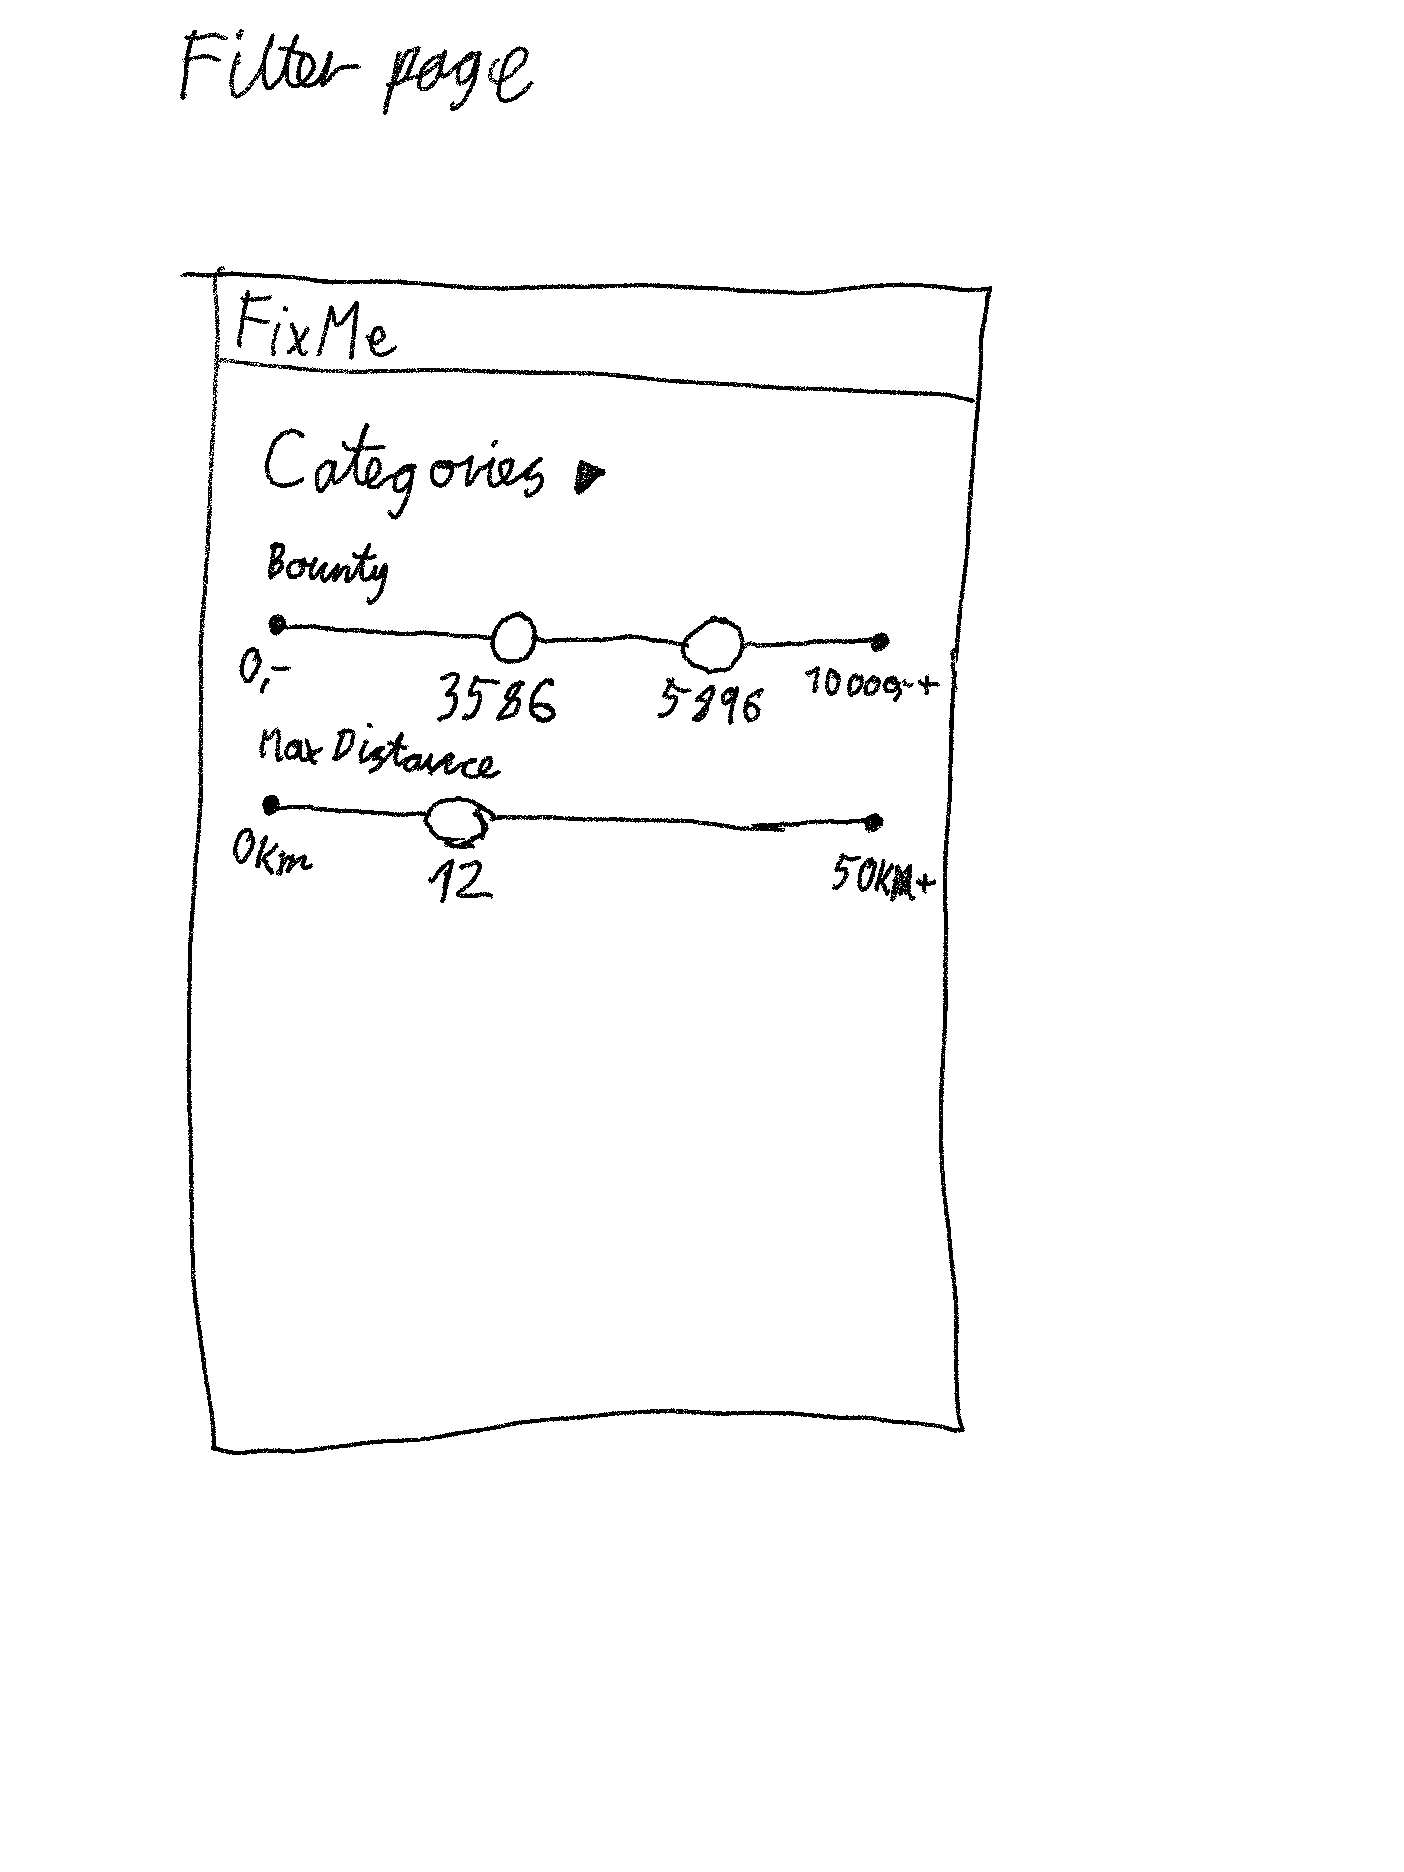 Filter page
FixMe
Categories
Bounty
0,- 3586 5896 10000,-+
Max Distance
0km 12 50KM+